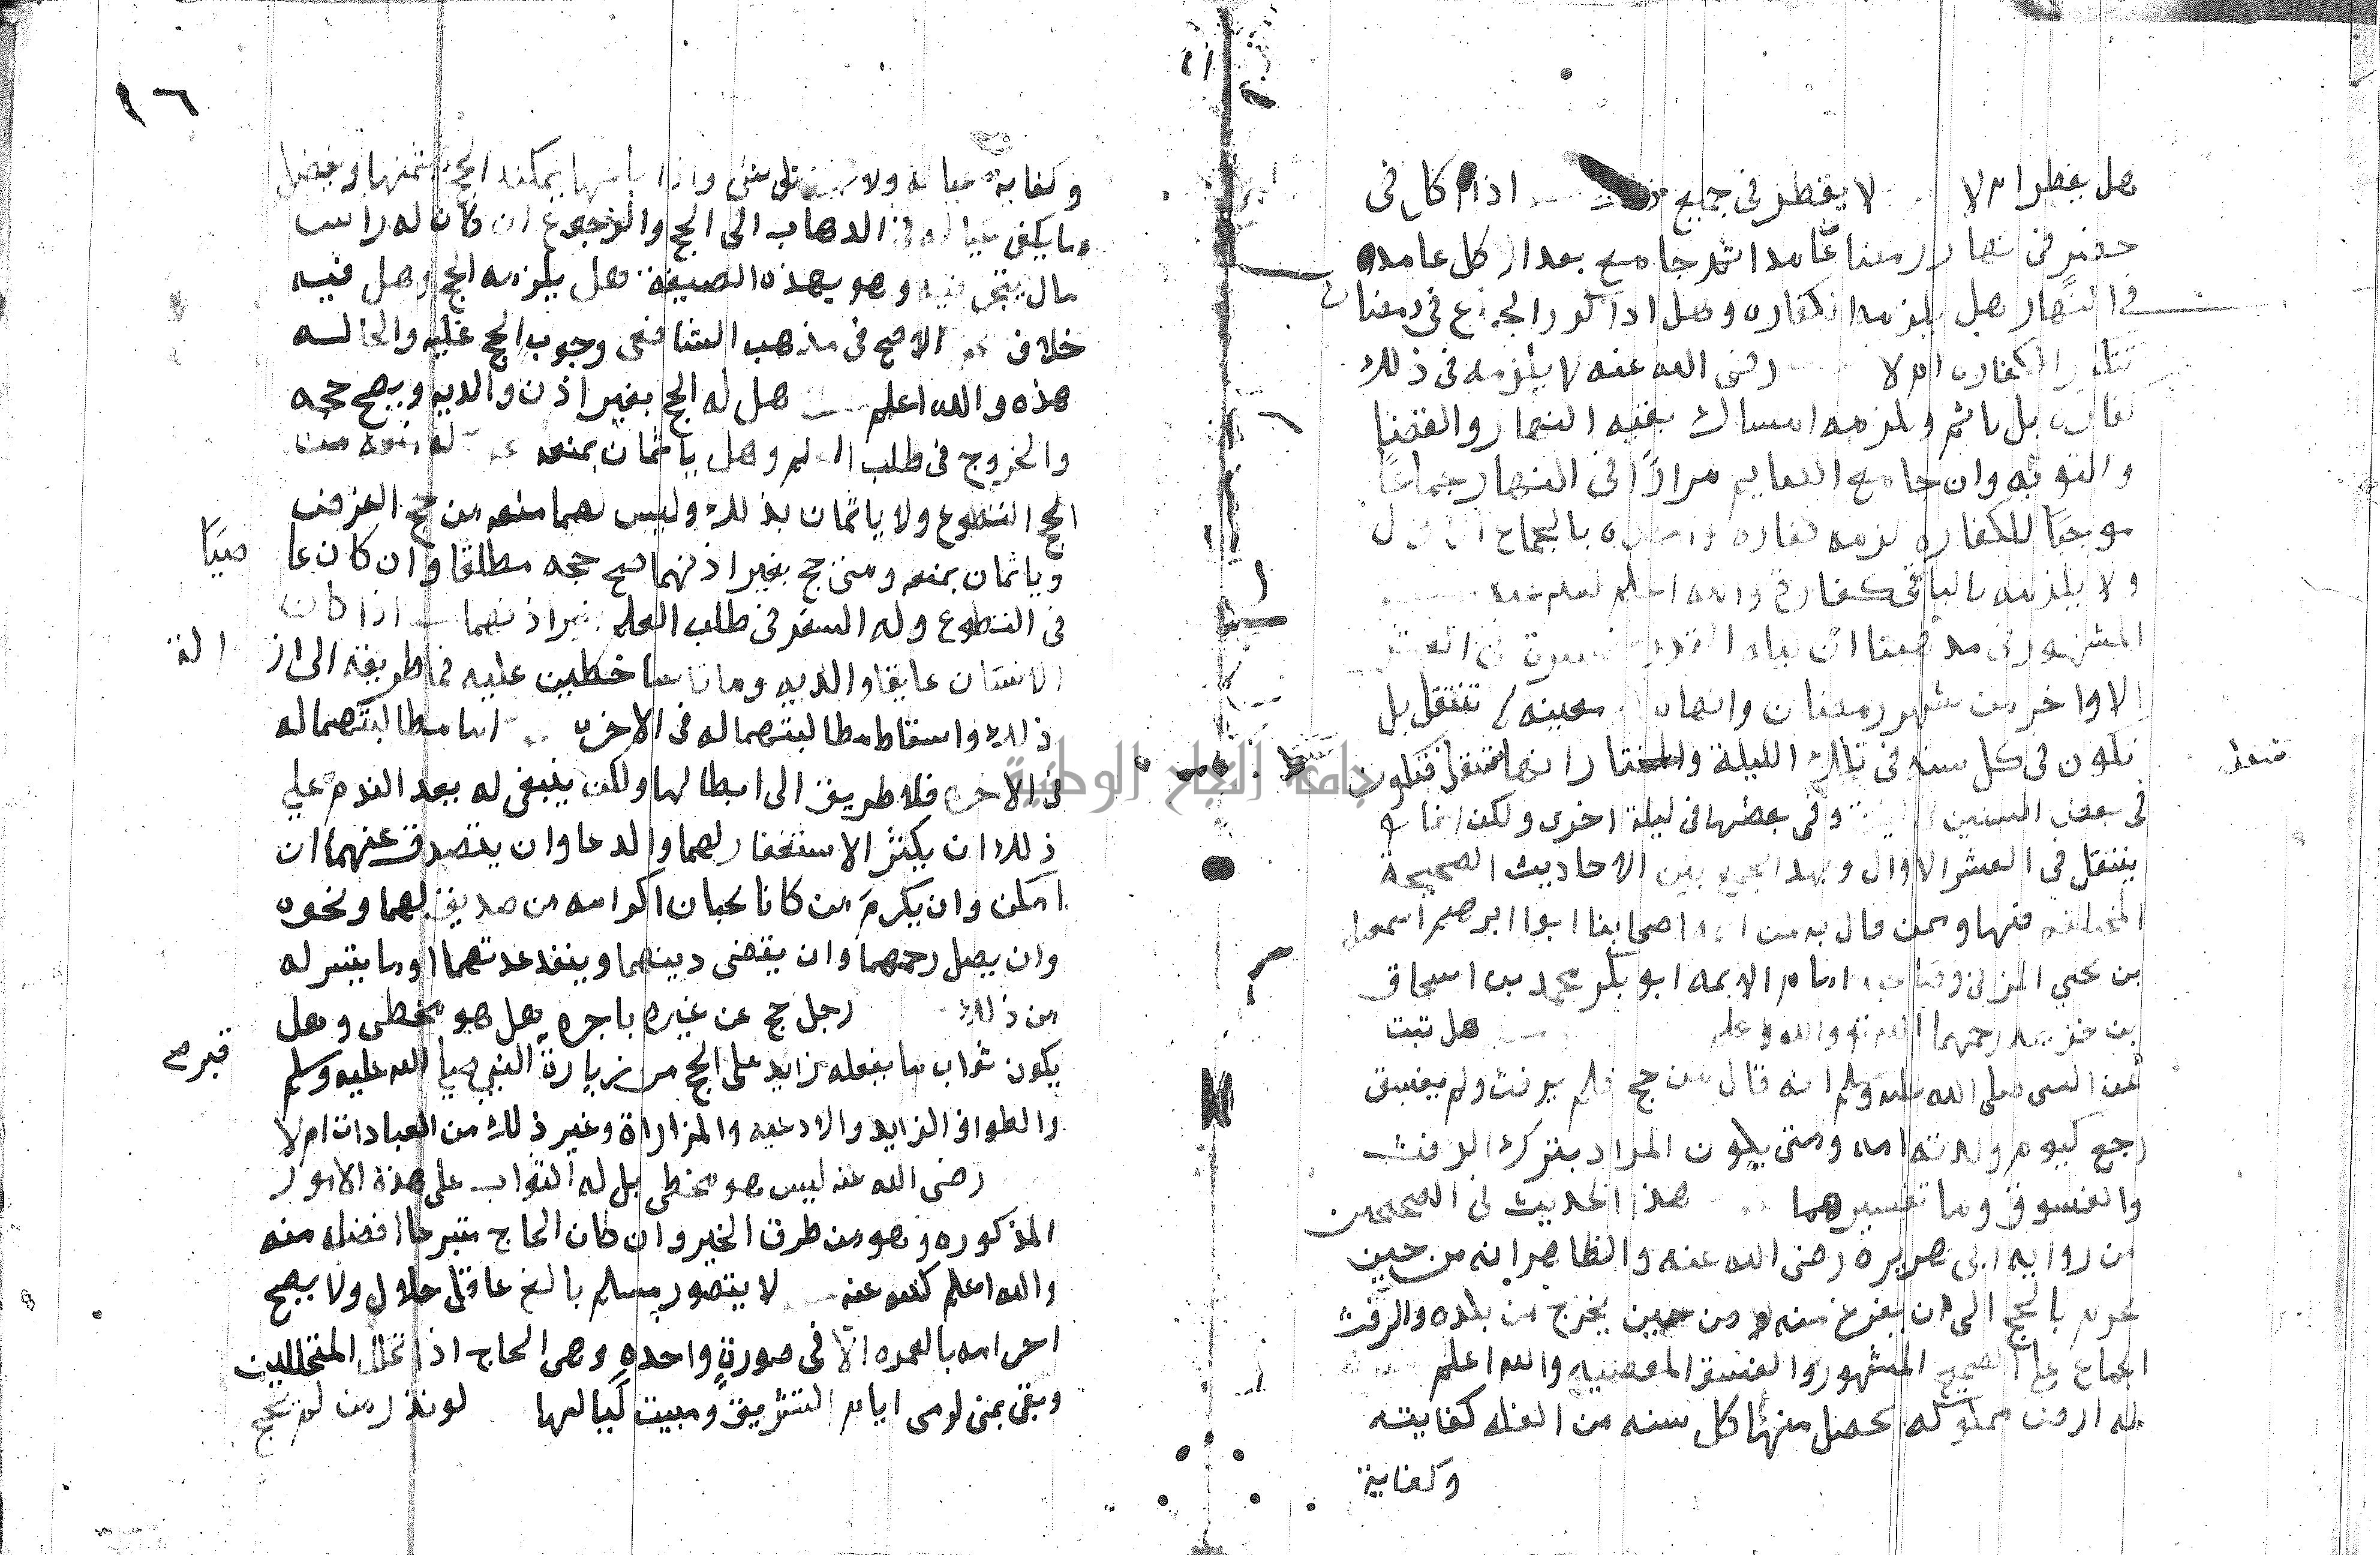 هل يفطر ام لا لا يفطر في جميع اذا كان في
حضر في نهار رمضان عامدا ثم جامع بعد الاكل عامدا
في النهار هل يلزمه الكفاره وهل اذا كرر الجماع في رمضان
تتكرر الكفاره ام لا رضى الله عنه لا يلزمه في ذلك
كفاره بل ياثم ويلزمه امساك بقيه النهار والقضا
والتوبه وان جامع الصايم مرارًا في النهار جماعًا
موجبًا للكفاره لزمه كفاره واحده بالجماع الاول
ولا يلزمه بالباقي كفاره والله اعلم
المشهور في مذهبنا ان ليله القدر في العشر
الاواخر من شهر رمضان وانها معينه لا تنتقل بل
تكون في كل سنه في تلك الليلة والمختار انها تنتقل فتكون
تنتقل
في بعض السنين في ليلة وفي بعضها في ليلة اخرى ولكن انما
ينتقل في العشر الاوال وبهذا يجمع بين الاحاديث الصحيحة
المختلفه فيها وممن قال به من اصحابنا ابوا ابرهيم اسمعيل
بن يحيى المزني وصاحبه امام الايمه ابو بكر محمد بن اسحاق
بن خزيمه رحمهما الله تع والله اعلم هل ثبت
عن النبي صلى الله عليه وسلم انه قال من حج فلم يرفث ولم يفسق
رجع كيوم ولدته امه ومتى يكون المراد بترك الرفث
والفسوق وما تفسيرهما هذا الحديث في الصحيحين
من روايه ابى هريره رضى الله عنه والظاهر انه من حين
يحرم بالحج الى ان يفرغ منه لا من حين يخرج من بلده والرفث
الجماع على الصحيح المشهور والفسق المعصيه والله اعلم
له ارض مملوكه يحصل منها كل سنه من الغله كفايته
وكفاية
١٦
وكفايه عياله ولا شى واذا باعها يمكنه الحج بثمنها ويفضل
ما يكفى عياله في الذهاب الى الحج والرجوع ان كان له راس
مال يتجر فيه وهو بهذه الصيغة هل يلزمه الحج وهل فيه
خلاف نعم الاصح في مذهب الشافعى وجوب الحج عليه والحاله
هذه والله اعلم هل له الحج بغير اذن والديه ويصح حجه
والخروج في طلب العلم وهل ياثمان بمنعه لهما منعه من
الحج التطوع ولا ياثمان بذلك وليس لهما منعه من حج الفرض
وياثمان بمنعه ومتى حج بغير اذنهما صح حجه مطلقا وان كان عا
صيًا
في التطوع وله السفر في طلب العلم بغير اذنهما اذا كان
الانسان عاقا والديه وماتا ساخطين عليه فما طريقه الى از
الة
ذلك واسقاط مطالبتهما له في الاخره اما مطالبتهما له
في الاخره فلا طريق الى ابطالها ولكن ينبغي له بعد الندم على
ذلك ان يكثر الاستغفار لهما والدعا وان يتصدق عنهما ان
امكن وان يكرم من كانا يحبان اكرامه من صديق لهما ونحوه
وان يصل رحمهما وان يقضى دينهما وينفذ عدتهما او ما يتيسر له
من ذلك رجل حج عن غيره باجره هل هو مخطى وهل
يكون ثواب ما يفعله زايد على الحج من زيارة النبي صلى الله عليه وسلم
قبر ص
والطواف الزايد والادعيه والمزاراة وغير ذلك من العبادات ام لا
رضى الله عنه ليس هو مخطى بل له الثواب على هذه الامور
المذكوره وهو من طرق الخير وان كان الحاج متبرعا افضل منه
والله اعلم كتبه عنه لا يتصور مسلم بالغ عاقل حلال ولا يصح
احرامه بالعمره الّا في صورةٍ واحده وهي الحاج اذا تحلل التحللين
وبقى بمنى لرمى ايام التشريق ومبيت لياليها لو نذر من لم يحج